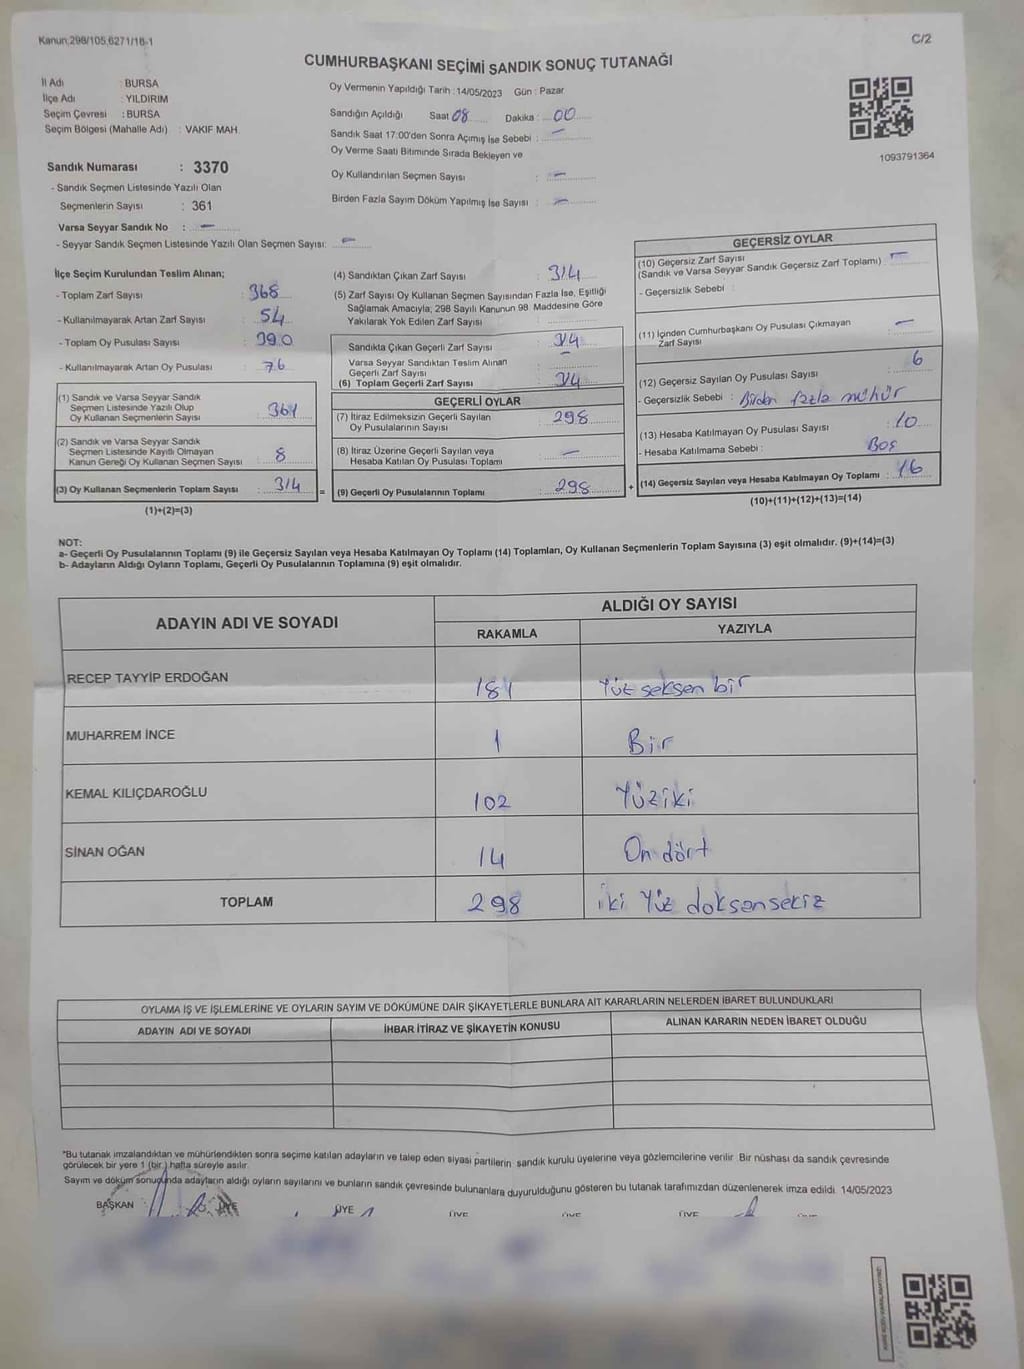 Kanun:298/105,6271/18-1
C/2
CUMHURBAŞKANI SEÇİMİ SANDIK SONUÇ TUTANAĞI
İl Adı : BURSA
İlçe Adı : YILDIRIM
Seçim Çevresi : BURSA
Seçim Bölgesi (Mahalle Adı) : VAKIF MAH.
Oy Vermenin Yapıldığı Tarih :14/05/2023 Gün : Pazar
Sandığın Açıldığı Saat 08 Dakika : 00
Sandık Saat 17:00'den Sonra Açımış İse Sebebi : -
Oy Verme Saati Bitiminde Sırada Bekleyen ve
Oy Kullandırılan Seçmen Sayısı : -
Birden Fazla Sayım Döküm Yapılmış İse Sayısı : -
1093791364
Sandık Numarası : 3370
- Sandık Seçmen Listesinde Yazılı Olan
Seçmenlerin Sayısı : 361
Varsa Seyyar Sandık No : -
- Seyyar Sandık Seçmen Listesinde Yazılı Olan Seçmen Sayısı: -
İlçe Seçim Kurulundan Teslim Alınan;
- Toplam Zarf Sayısı : 368
- Kullanılmayarak Artan Zarf Sayısı : 54
- Toplam Oy Pusulası Sayısı : 390
- Kullanılmayarak Artan Oy Pusulası : 76
(1) Sandık ve Varsa Seyyar Sandık
Seçmen Listesinde Yazılı Olup
Oy Kullanan Seçmenlerin Sayısı : 361
(2) Sandık ve Varsa Seyyar Sandık
Seçmen Listesinde Kayıtlı Olmayan
Kanun Gereği Oy Kullanan Seçmen Sayısı : 8
(3) Oy Kullanan Seçmenlerin Toplam Sayısı : 314 =
(1)+(2)=(3)
(4) Sandıktan Çıkan Zarf Sayısı : 314
(5) Zarf Sayısı Oy Kullanan Seçmen Sayısından Fazla İse, Eşitliği
Sağlamak Amacıyla; 298 Sayılı Kanunun 98. Maddesine Göre
Yakılarak Yok Edilen Zarf Sayısı :
Sandıkta Çıkan Geçerli Zarf Sayısı : 314
Varsa Seyyar Sandıktan Teslim Alınan
Geçerli Zarf Sayısı : -
(6) Toplam Geçerli Zarf Sayısı : 314
GEÇERLİ OYLAR
(7) İtiraz Edilmeksizin Geçerli Sayılan
Oy Pusulalarının Sayısı : 298
(8) İtiraz Üzerine Geçerli Sayılan veya
Hesaba Katılan Oy Pusulası Toplamı : -
(9) Geçerli Oy Pusulalarının Toplamı : 298 +
GEÇERSİZ OYLAR
(10) Geçersiz Zarf Sayısı
(Sandık ve Varsa Seyyar Sandık Geçersiz Zarf Toplamı) : -
- Geçersizlik Sebebi :
(11) İçinden Cumhurbaşkanı Oy Pusulası Çıkmayan
Zarf Sayısı : -
(12) Geçersiz Sayılan Oy Pusulası Sayısı : 6
- Geçersizlik Sebebi : Birden fazla mühür
(13) Hesaba Katılmayan Oy Pusulası Sayısı : 10
- Hesaba Katılmama Sebebi : Boş
(14) Geçersiz Sayılan veya Hesaba Katılmayan Oy Toplamı : 16
(10)+(11)+(12)+(13)=(14)
NOT:
a- Geçerli Oy Pusulalarının Toplamı (9) ile Geçersiz Sayılan veya Hesaba Katılmayan Oy Toplamı (14) Toplamları, Oy Kullanan Seçmenlerin Toplam Sayısına (3) eşit olmalıdır. (9)+(14)=(3)
b- Adayların Aldığı Oyların Toplamı, Geçerli Oy Pusulalarının Toplamına (9) eşit olmalıdır.
ADAYIN ADI VE SOYADI
ALDIĞI OY SAYISI
RAKAMLA YAZIYLA
RECEP TAYYİP ERDOĞAN 181 Yüz seksen bir
MUHARREM İNCE 1 Bir
KEMAL KILIÇDAROĞLU 102 Yüziki
SİNAN OĞAN 14 On dört
TOPLAM 298 iki Yüz doksansekiz
OYLAMA İŞ VE İŞLEMLERİNE VE OYLARIN SAYIM VE DÖKÜMÜNE DAİR ŞİKAYETLERLE BUNLARA AİT KARARLARIN NELERDEN İBARET BULUNDUKLARI
ADAYIN ADI VE SOYADI İHBAR İTİRAZ VE ŞİKAYETİN KONUSU ALINAN KARARIN NEDEN İBARET OLDUĞU
*Bu tutanak imzalandıktan ve mühürlendikten sonra seçime katılan adayların ve talep eden siyasi partilerin sandık kurulu üyelerine veya gözlemcilerine verilir. Bir nüshası da sandık çevresinde
görülecek bir yere 1 (bir ) hafta süreyle asılır.
Sayım ve döküm sonucunda adayların aldığı oyların sayılarını ve bunların sandık çevresinde bulunanlara duyurulduğunu gösteren bu tutanak tarafımızdan düzenlenerek imza edildi. 14/05/2023
BAŞKAN ÜYE ÜYE ÜYE ÜYE ÜYE